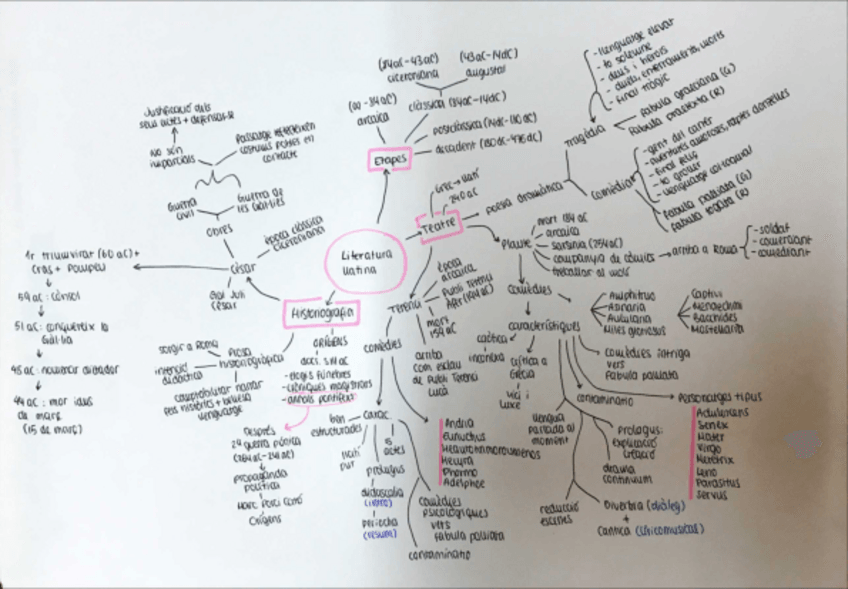 Literatura
llatina
Etapes
(240aC-43aC)
ciceroniana
(43aC-14dC)
augustal
clàssica (81aC-14dC)
arcaica
postclàssica (14dC-130dC)
decadent (130dC-476dC)
Teatre
Grec → llatí
240 aC
poesia dramàtica
Tragèdia
- llenguatge elevat
- to solemne
- deus i herois
- final tràgic
Fabula graeciana (G)
Fabula praetexta (R)
Comèdia
- gent del carrer
- final feliç
- to groller
- llenguatge col·loquial
Fabula palliata (G)
Fabula togata (R)
Plaute
mort 184 aC
arcaica
sarsinia (254aC)
companyia de còmics → arriba a Roma
- soldat
- comerciant
- comediant
treballar al molí
comèdies
Amphitruo
Asinaria
Aulularia
Miles gloriosus
Captivi
Menaechmi
Bacchides
Mostellaria
característiques
caòtica
incoherència
crítica a
Grècia
vici i
luxe
llengua
parlada al
moment
comèdies intriga
vers
Fabula palliata
contaminatio
Prologus:
explicació
creació
drama
continuum
reducció
escenes
Diverbia (diàleg)
+
Cantica (líricomusical)
Personatges tipus
Adulescens
Senex
Mater
Virgo
Meretrix
Leno
Parasitus
Servus
Terenci
època
arcaica
Publi Terenci
Afer (194aC)
mort
159 aC
arriba
com esclau
de Publi Terenci
Lucà
comèdies
Andria
Eunuchus
Heautontimorumenos
Hecyra
Phormio
Adelphoe
caràc.
ben
estructurades
llatí
pur
prologus
didascalia
(intro)
periocha
(resum)
5
actes
comèdies
psicològiques
vers
Fabula palliata
contaminatio
Historiografia
ORÍGENS
docs. s.IV aC
- elogis fúnebres
- cròniques magistrats
- annals pontífexs
Després
2a guerra púnica
propaganda
política
Marc Porci Cató
Orígens
Prosa
historiogràfica
sorgir a Roma
intenció
didàctica
fets històrics + bellesa
llenguatge
César
època clàssica
ciceroniana
Gai Juli
César
obres
Guerra
civil
Guerra de
les Gàl·lies
No són
imparcials
Justificació dels
seus actes + defensar-se
Passatge reflecteixen
costums pobles en
contacte
1r triumvirat (60 aC) +
Cras + Pompeu
59 aC: cònsol
51 aC: conquereix la
Gàl·lia
45 aC: nomenar dictador
44 aC: mor idus
de març
(15 de març)